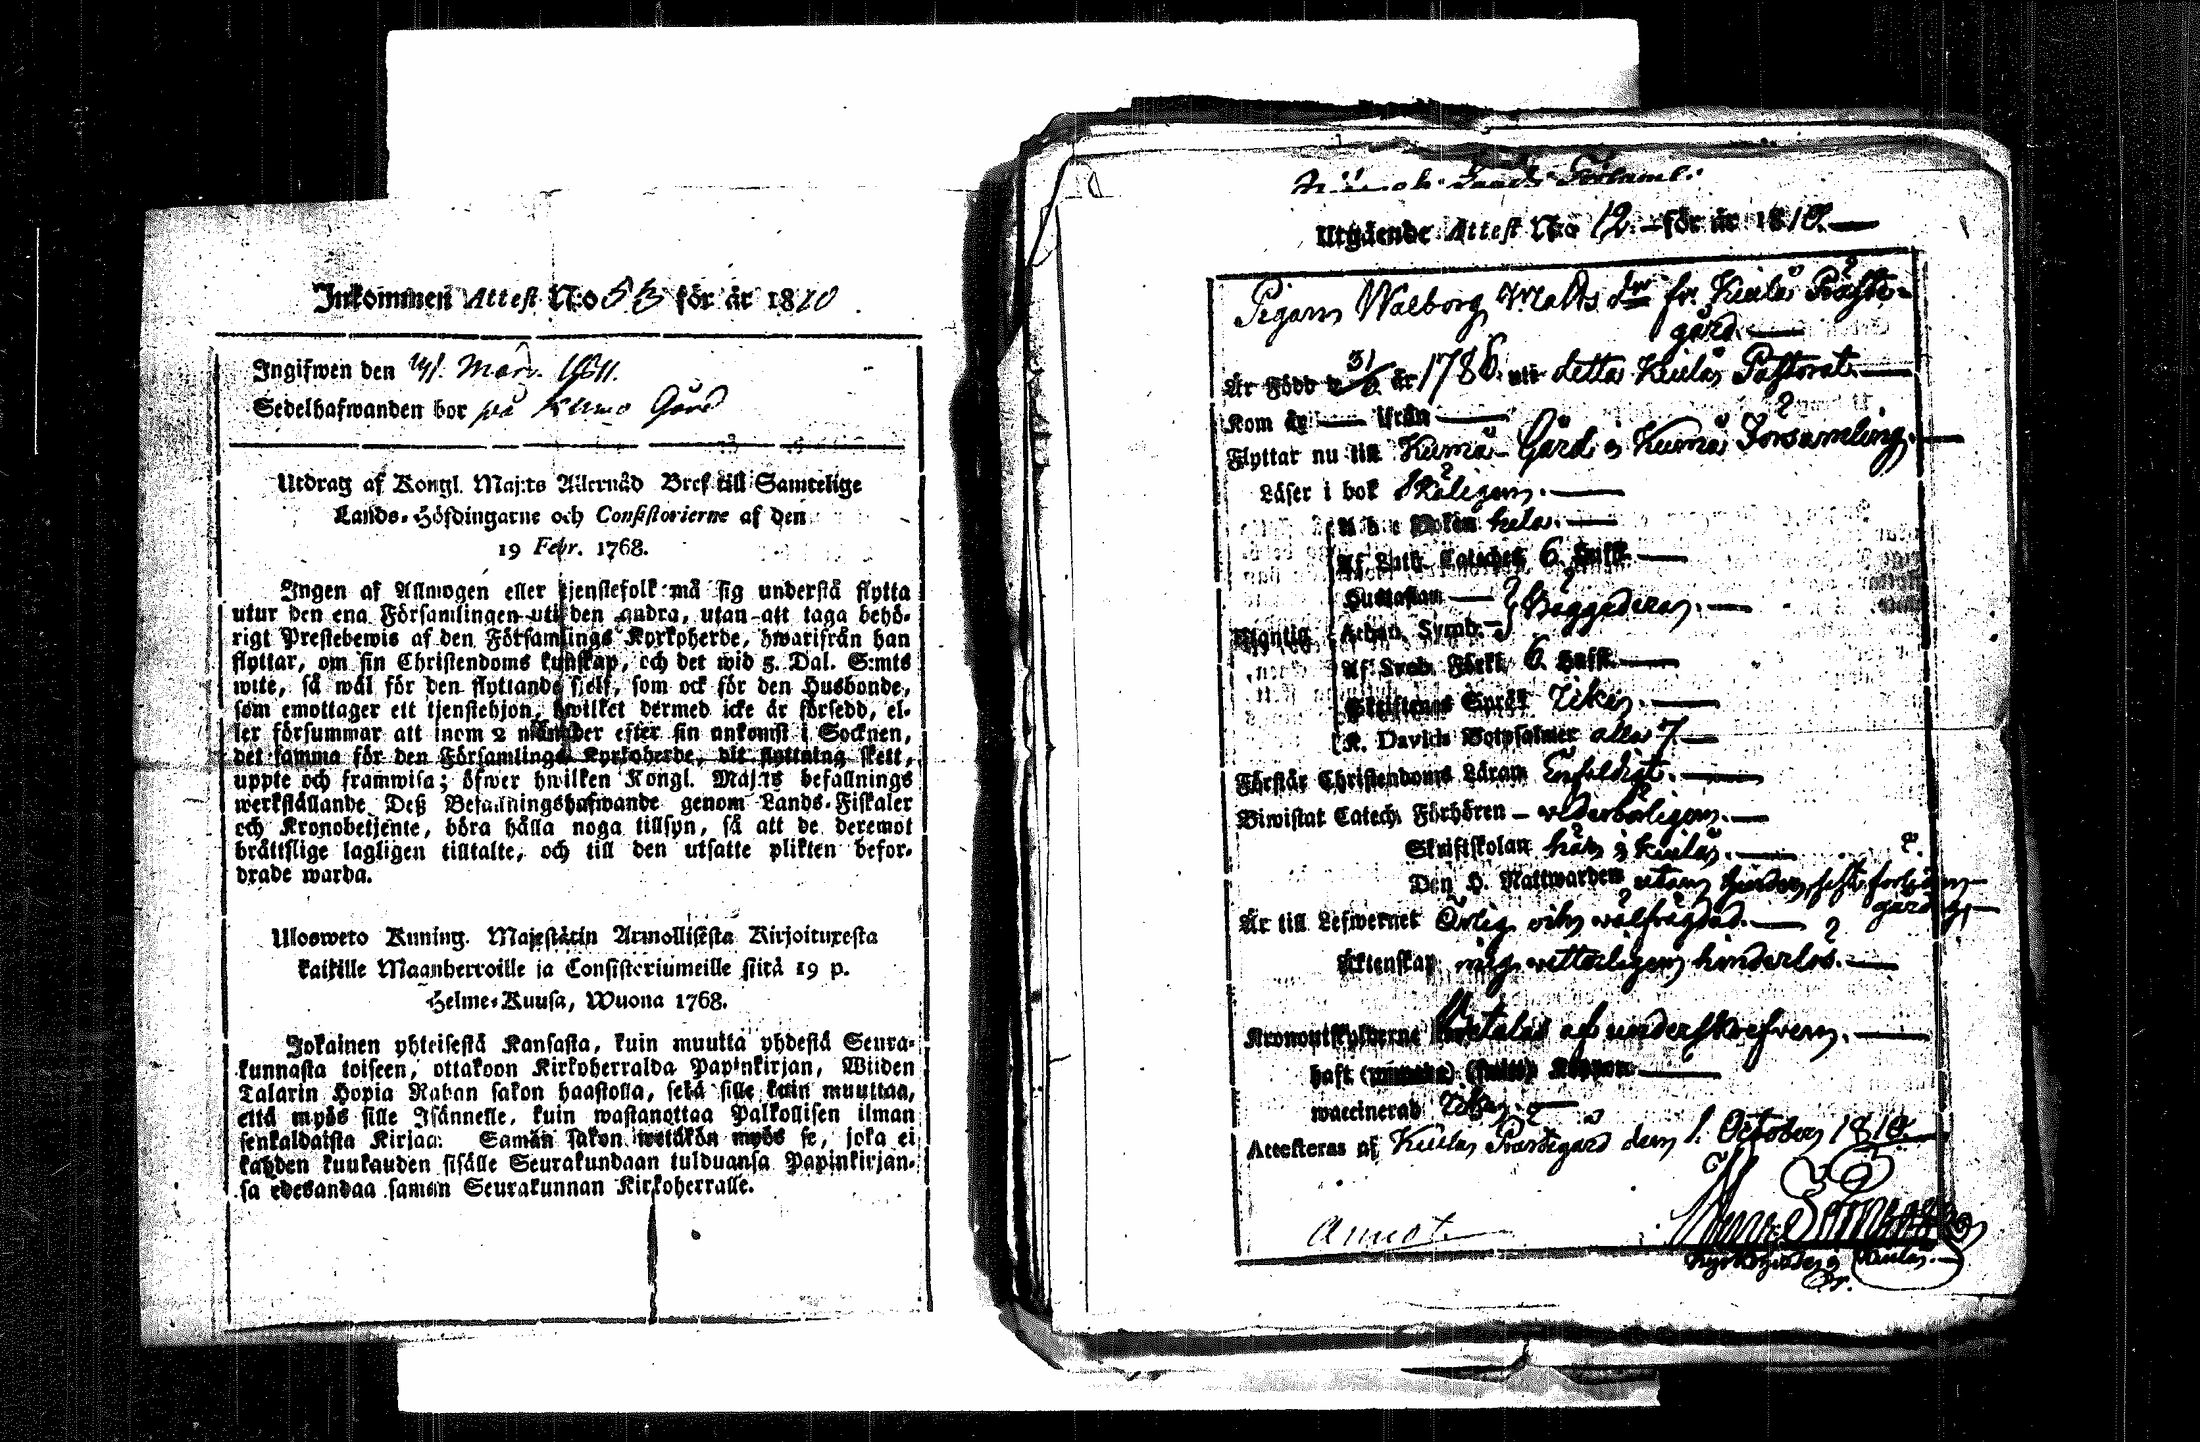 Inkommen Attest N:o 53 för år 1810
Ingifwen den Mars. 1811.
Sedelhafwanden bor på Kumo Gård
Utdrag af Kongl. Maj:ts Allernåd Bref till Samtelige
Lands-Höfdingarne och Consistorierne af den
19 Febr. 1768.
Ingen af Allmogen eller tjenstefolk må sig understå flytta
utur den ena Församlingen uti den andra, utan att taga behö-
rigt Prestebewis af den Församlings Kyrkoherde, hwarifrån han
flyttar, om sin Christendoms kunskap, och det wid 5. Dal. S:mts
wite, så wäl för den flyttande sjelf, som ock för den Husbonde,
som emottager ett tjenstehjon, hwilket dermed icke är försedd, el-
ler försummar att inom 2 månader efter sin ankomst i Socknen,
det samma för den Församlings Kyrkoherde, dit flyttning skett,
uppte och framwisa; öfwer hwilken Kongl. Maj:ts befallnings
werkställande Deß Befallningshafwande genom Lands-Fiskaler
och Kronobetjente, böra hålla noga tillsyn, så att de deremot
bråttslige lagligen tilltalte, och till den utsatte plikten befor-
drade warda.
Ulosweto Kuning. Majestätin Armollisesta Kirjoituxesta
kaikille Maanherroille ja Consistoriumeille siitä 19 p.
Helme-Kuusa, Wuona 1768.
Jokainen yhteisestä Kansasta, kuin muutta yhdestä Seura-
kunnasta toiseen, ottakoon Kirkoherralda Papinkirjan, Wiiden
Talarin Hopia Rahan sakon haastolla, sekä sille kuin muuttaa,
että myös sille Isännelle, kuin wastanottaa Palkollisen ilman
senkaldaista Kirjaa: Samän sakon wetäkön myös se, joka ei
kahden kuukauden sisälle Seurakundaan tulduansa Papinkirjan-
sa edesandaa saman Seurakunnan Kirkoherralle.
Utgående Attest N:o 12. för år 1810.
Pigan Walborg Matts dr fr. Kiulo Präste-
gård.
Är Född d 31/ år 1786. uti detta Kiulo Pastorat.
Kom år ifrån
Flyttar nu till Kumo Gård i Kumo Församling.
Läser i bok Skäligen.
A b c Boken hela.
Af Luth. Cateches 6. Huft.
Hustaflan
Athan. Symb. Beggedera.
Mantig
Af Sveb. Förkl. 6. Huft.
Skriftenes Språk
K. Davids Botpsalmer alla 7.
Förstår Christendoms Läran Enfaldigt.
Biwistat Catech. Förhören wederbörligen.
Skriftskolan här i Kiulo.
Den H. Nattwarden utan hinder,
Är till Lefwernet Ärlig och wälfrägdad.
Äktenskap mig wetterligen hinderlös.
Kronoutskylderne betalas af underskrefven.
haft Koppor
waccinerad
Attesteras af Kiulo Prästegård den 1. October 1810.
Annot.
Kyrkoherde i Kiulo.